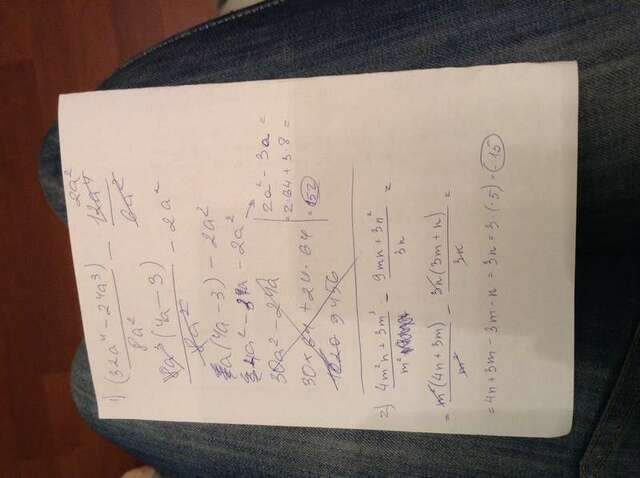 1) (32a⁴ − 24a³) / 8a² − 12a⁴ / 6a² 2a²
8a³(4a − 3) / 8a² − 2a²
a(4a − 3) − 2a²
4a² − 3a − 2a²
30a² − 24a
30 × 64 + 24 · 64
9456
2a² − 3a =
= 2·64 + 3·8 =
= 152
2) (4m²n + 3m³) / m² − (9mn + 3n²) / 3n =
= m²(4n + 3m) / m² − 3n(3m + n) / 3n =
= 4n + 3m − 3m − n = 3n = 3·(−5) = −15